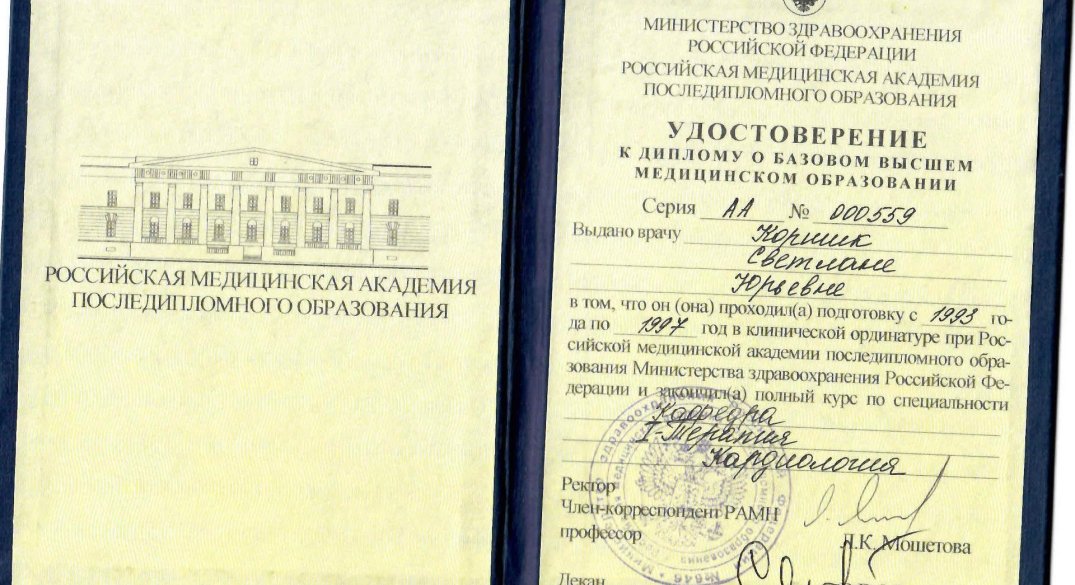 РОССИЙСКАЯ МЕДИЦИНСКАЯ АКАДЕМИЯ
ПОСЛЕДИПЛОМНОГО ОБРАЗОВАНИЯ
МИНИСТЕРСТВО ЗДРАВООХРАНЕНИЯ
РОССИЙСКОЙ ФЕДЕРАЦИИ
РОССИЙСКАЯ МЕДИЦИНСКАЯ АКАДЕМИЯ
ПОСЛЕДИПЛОМНОГО ОБРАЗОВАНИЯ
УДОСТОВЕРЕНИЕ
К ДИПЛОМУ О БАЗОВОМ ВЫСШЕМ
МЕДИЦИНСКОМ ОБРАЗОВАНИИ
Серия АА № 000559
Выдано врачу Коршик
Светлане
Юрьевне
в том, что он (она) проходил(а) подготовку с 1993 го-
да по 1997 год в клинической ординатуре при Рос-
сийской медицинской академии последипломного обра-
зования Министерства здравоохранения Российской Фе-
дерации и закончил(а) полный курс по специальности
Кафедра
I-Терапия
Кардиология
Ректор
Член-корреспондент РАМН
профессор
Л.К. Мошетова
Декан